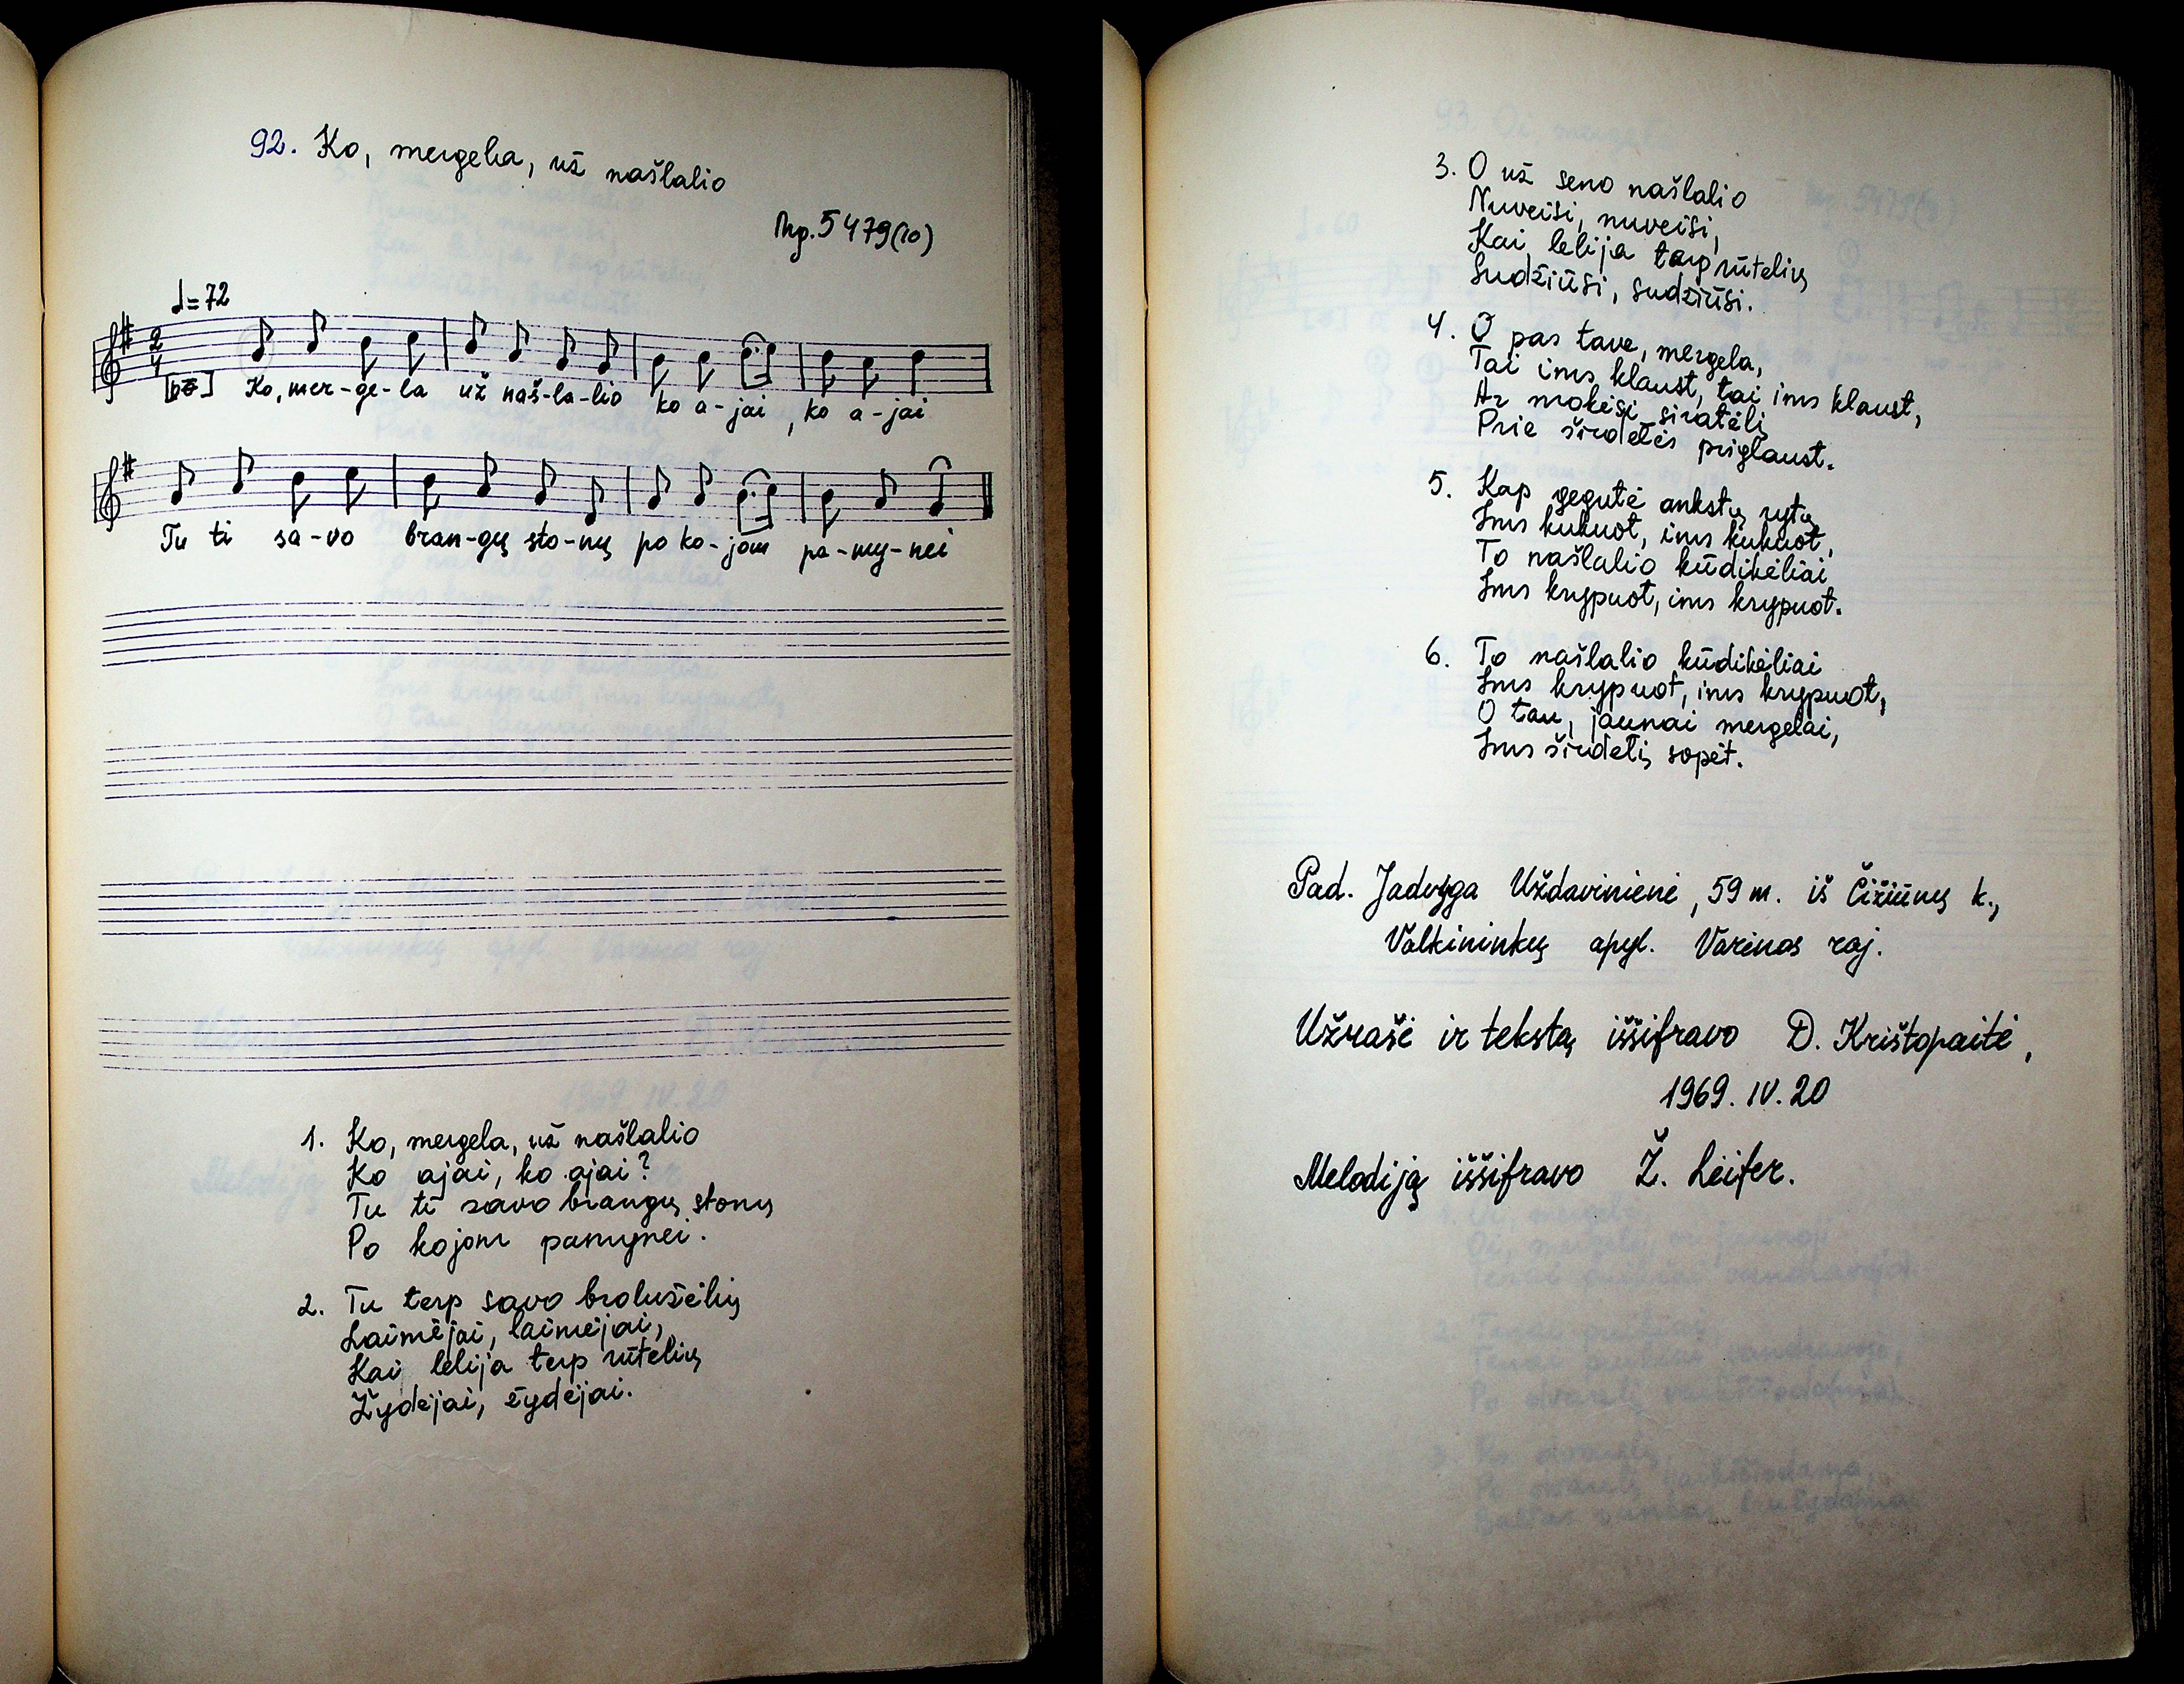 92. Ko, mergela, už našlalio
Mg. 5479(10)
♩=72
2
4
Ko, mer-ge-la už naš-la-lio ko a-jai, ko a-jai
Tu ti sa-vo bran-gų sto-nų po ko-jom pa-my-nei
1. Ko, mergela, už našlalio
Ko ajai, ko ajai?
Tu ti savo brangų stonų
Po kojom pamynei.
2. Tu terp savo brolužėlių
Laimėjai, laimėjai,
Kai lelija terp rūtelių
Žydėjai, žydėjai.
3. O už seno našlalio
Nuveisi, nuveisi,
Kai lelija terp rūtelių
Sudžiūsi, sudžiūsi.
4. O pas tave, mergela,
Tai ims klaust, tai ims klaust,
Ar mokėsi siratėlį
Prie širdetės priglaust.
5. Kap gegutė ankstų rytų
Ims kukuot, ims kukuot,
To našlalio kūdikėliai
Ims krypuot, ims krypuot.
6. To našlalio kūdikėliai
Ims krypuot, ims krypuot,
O tau, jaunai mergelai,
Ims širdetį sopėt.
Pad. Jadvyga Uždavinienė, 59 m. iš Čižiūnų k.,
Valkininkų apyl. Varėnos raj.
Užrašė ir tekstą iššifravo D. Krištopaitė,
1969. IV. 20
Melodiją iššifravo Ž. Leifer.